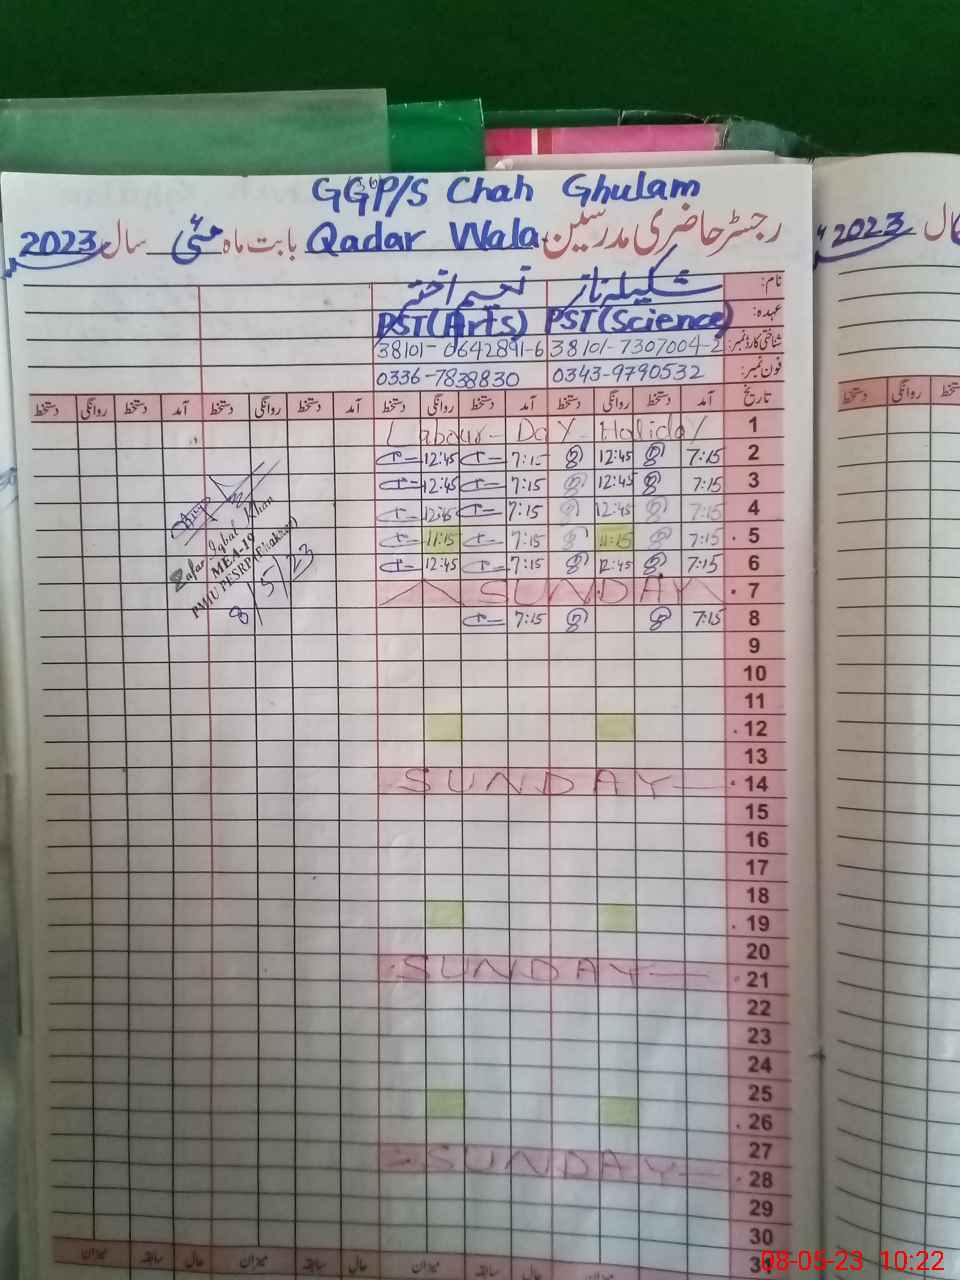 GGP/S Chah Ghulam
Qadar Wala
رجسٹر حاضری مدرسین بابت ماہ مئی سال 2023
2023
نام: شکیلہ ناز نعیم اختر
عہدہ: PST (Science) PST (Arts)
شناختی کارڈ نمبر: 38101-7307004-2 38101-0642891-6
فون نمبر: 0343-9790532 0336-7838830
تاریخ آمد دستخط روانگی دستخط آمد دستخط روانگی دستخط آمد دستخط روانگی دستخط آمد دستخط روانگی دستخط
1 Labour Day Holiday
2 7:15 12:45 7:15 12:45
3 7:15 12:45 7:15 12:45
4 7:15 12:45 7:15 12:45
5 7:15 11:15 7:15 11:15
6 7:15 12:45 7:15 12:45
7 SUNDAY
8 7:15 7:15
Zafar Iqbal Khan
MEA-19
PMIU PESRP (Bhakkar)
8/5/23
9
10
11
12
13
14 SUNDAY
15
16
17
18
19
20
21 SUNDAY
22
23
24
25
26
27
28 SUNDAY
29
30
میزان سابقہ حال میزان سابقہ حال میزان سابقہ حال میزان
08-05-23 10:22